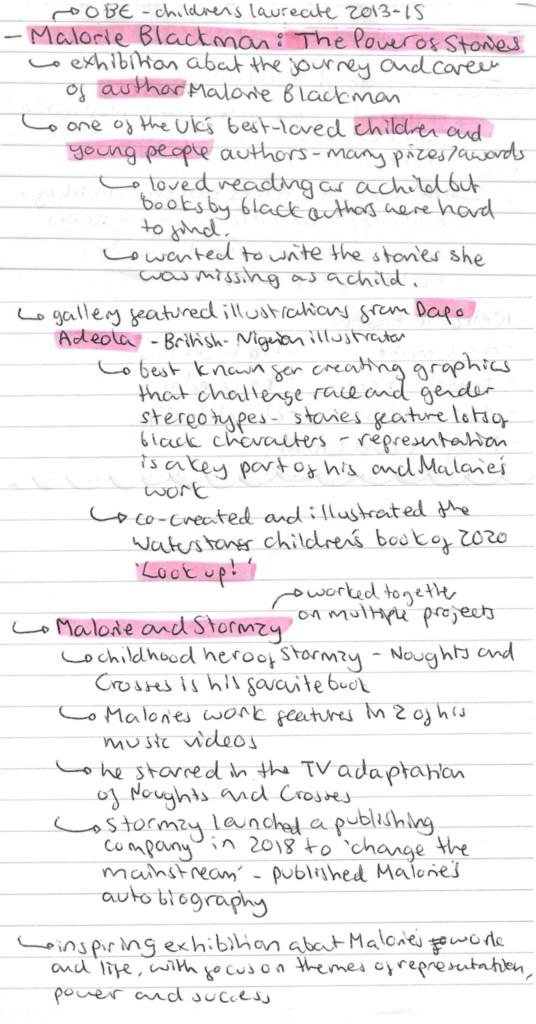 → OBE - children's laureate 2013-15
- Malorie Blackman: The Power of Stories
↳ exhibition about the journey and career
of author Malorie Blackman
↳ one of the UK's best-loved children and
young people authors - many prizes/awards
↳ loved reading as a child but
books by black authors were hard
to find.
↳ wanted to write the stories she
was missing as a child.
↳ gallery featured illustrations from Dapo
Adeola - British-Nigerian illustrator
↳ best known for creating graphics
that challenge race and gender
stereotypes - stories feature lots of
black characters - representation
is a key part of his and Malorie's
work
↳ co-created and illustrated the
Waterstones children's book of 2020
'Look up!'
→ worked together
on multiple projects
↳ Malorie and Stormzy
↳ childhood hero of Stormzy - Noughts and
Crosses is his favourite book
↳ Malories work features in 2 of his
music videos
↳ he starred in the TV adaptation
of Noughts and Crosses
↳ Stormzy launched a publishing
company in 2018 to 'change the
mainstream' - published Malorie's
autobiography
↳ inspiring exhibition about Malories work
and life, with focus on themes of representation,
power and success